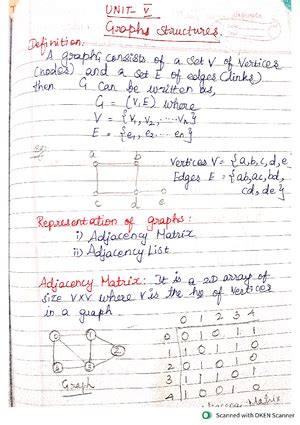 UNIT- V
Graphs Structures.
Definition:
A graph, consists of a set V of Vertices
(nodes) and a set E of edges (links)
then G can be written as,
G = (V, E) where
V = {V1, V2, ..... Vn}
E = {e1, e2.... en}
a b
c d e
Vertices V = {a,b,c,d,e
Edges E = {ab,ac,bd,
cd,de}
Representation of graphs:
i) Adjacency Matrix
ii) Adjacency List
Adjacency Matrix: It is a 2D array of
size VXV where V is the no of Vertices
in a graph.
0 1 2 3 4
0 0 1 0 1 1
1 1 0 1 1 0
2 0 1 0 1 0
3 1 1 1 0 1
4 1 0 0 1 0
Graph
Matrix
Scanned with OKEN Scanner